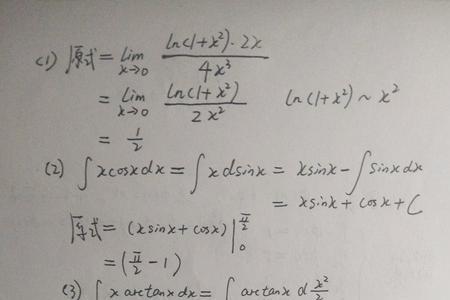 (1) 原式 = lim x→0 ln(1+x²)·2x / 4x³
= lim x→0 ln(1+x²) / 2x² ln(1+x²) ~ x²
= 1/2
(2) ∫ x cosx dx = ∫ x d sinx = x sinx - ∫ sinx dx
= x sinx + cosx + C
原式 = (x sinx + cosx) | π/2 0
= (π/2 - 1)
(3) ∫ x arctanx dx = ∫ arctanx d x²/2